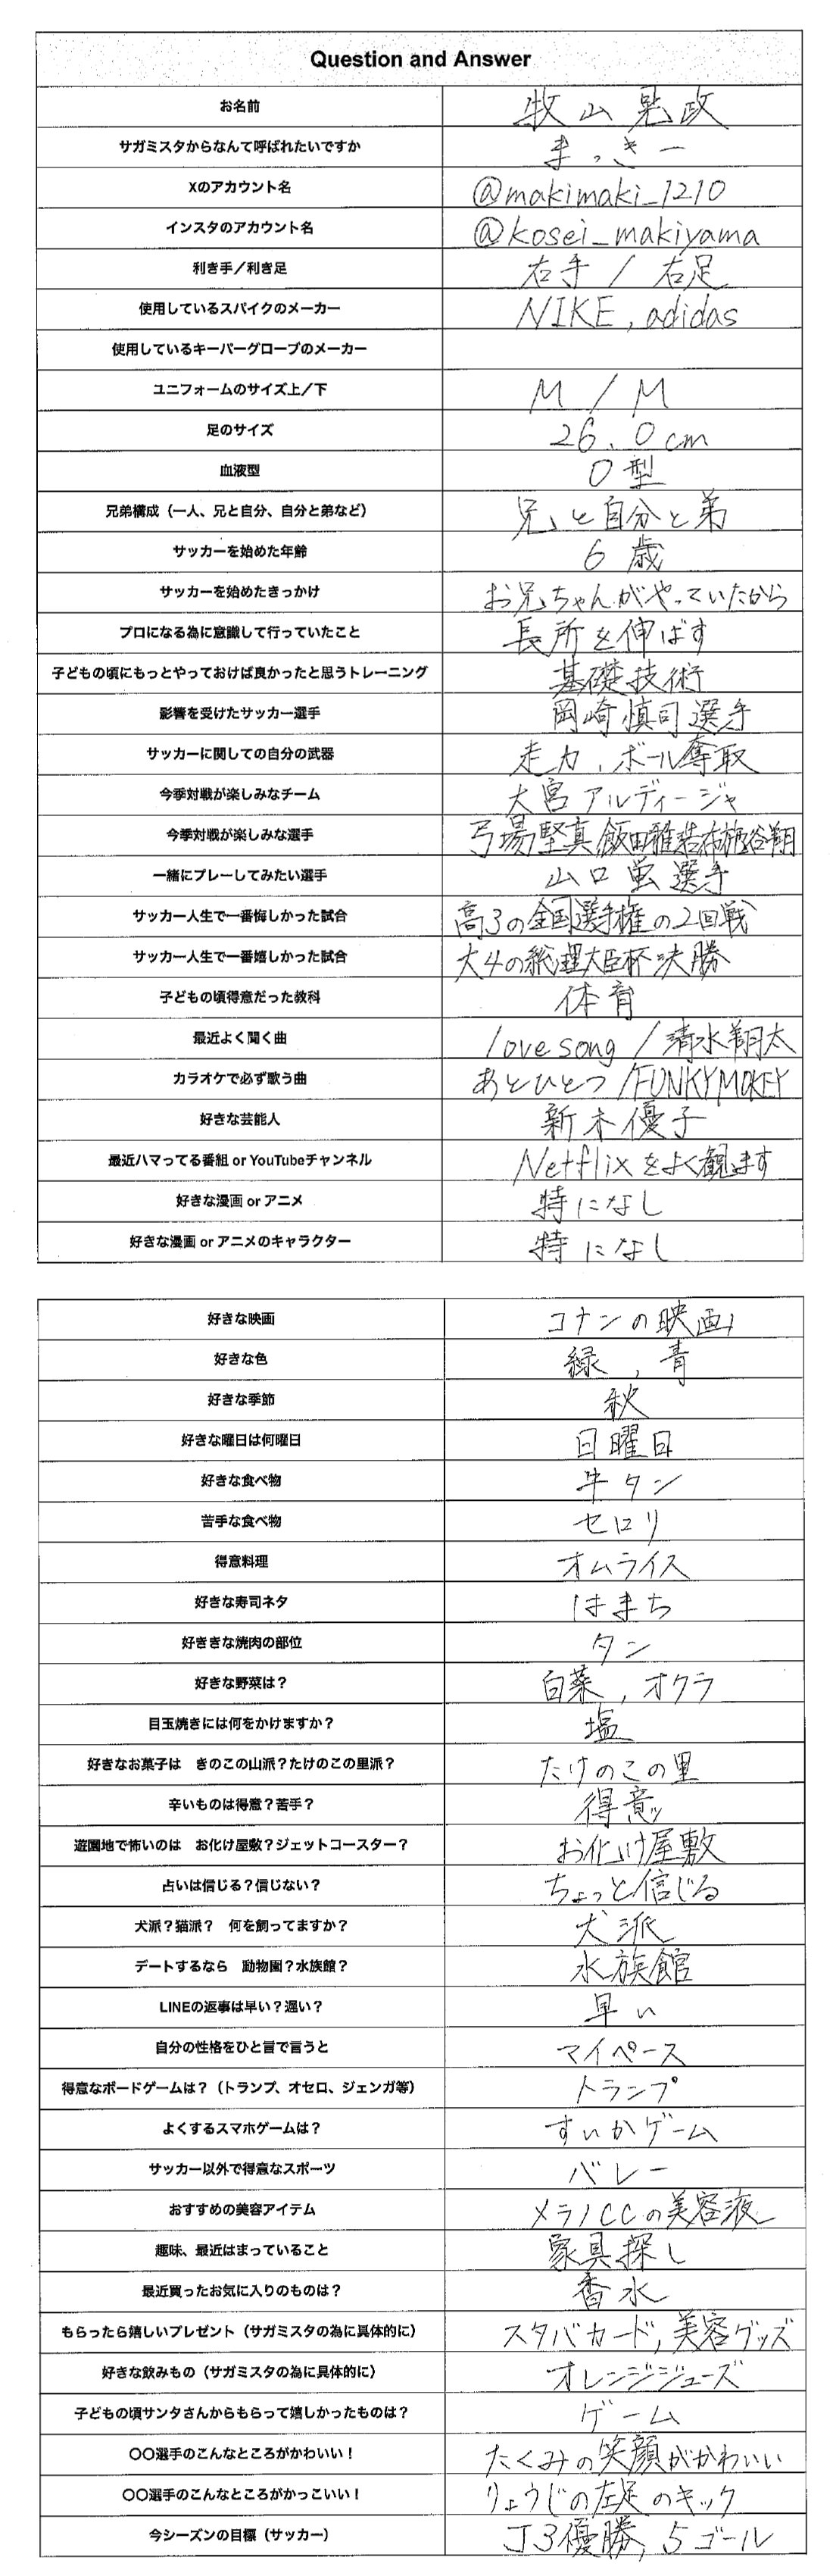 Question and Answer
お名前 牧山晃政
サガミスタからなんて呼ばれたいですか まっきー
Xのアカウント名 @makimaki_1210
インスタのアカウント名 @kosei_makiyama
利き手／利き足 右手 / 右足
使用しているスパイクのメーカー NIKE, adidas
使用しているキーパーグローブのメーカー
ユニフォームのサイズ上／下 M / M
足のサイズ 26.0cm
血液型 O型
兄弟構成（一人、兄と自分、自分と弟など） 兄と自分と弟
サッカーを始めた年齢 6歳
サッカーを始めたきっかけ お兄ちゃんがやっていたから
プロになる為に意識して行っていたこと 長所を伸ばす
子どもの頃にもっとやっておけば良かったと思うトレーニング 基礎技術
影響を受けたサッカー選手 岡崎慎司選手
サッカーに関しての自分の武器 走力、ボール奪取
今季対戦が楽しみなチーム 大宮アルディージャ
今季対戦が楽しみな選手 弓場堅真 飯田雅浩 布施谷翔
一緒にプレーしてみたい選手 山口蛍選手
サッカー人生で一番悔しかった試合 高3の全国選手権の2回戦
サッカー人生で一番嬉しかった試合 大4の総理大臣杯決勝
子どもの頃得意だった教科 体育
最近よく聞く曲 love song / 清水翔太
カラオケで必ず歌う曲 あとひとつ /FUNKY MOKEY
好きな芸能人 新木優子
最近ハマってる番組 or YouTubeチャンネル Netflixをよく観ます
好きな漫画 or アニメ 特になし
好きな漫画 or アニメのキャラクター 特になし
好きな映画 コナンの映画
好きな色 緑, 青
好きな季節 秋
好きな曜日は何曜日 日曜日
好きな食べ物 牛タン
苦手な食べ物 セロリ
得意料理 オムライス
好きな寿司ネタ はまち
好ききな焼肉の部位 タン
好きな野菜は？ 白菜, オクラ
目玉焼きには何をかけますか？ 塩
好きなお菓子は　きのこの山派？たけのこの里派？ たけのこの里
辛いものは得意？苦手？ 得意ッ
遊園地で怖いのは　お化け屋敷？ジェットコースター？ お化け屋敷
占いは信じる？信じない？ ちょっと信じる
犬派？猫派？　何を飼ってますか？ 犬派
デートするなら　動物園？水族館？ 水族館
LINEの返事は早い？遅い？ 早い
自分の性格をひと言で言うと マイペース
得意なボードゲームは？（トランプ、オセロ、ジェンガ等） トランプ
よくするスマホゲームは？ すいかゲーム
サッカー以外で得意なスポーツ バレー
おすすめの美容アイテム メラノCCの美容液
趣味、最近はまっていること 家具探し
最近買ったお気に入りのものは？ 香水
もらったら嬉しいプレゼント（サガミスタの為に具体的に） スタバカード, 美容グッズ
好きな飲みもの（サガミスタの為に具体的に） オレンジジュース
子どもの頃サンタさんからもらって嬉しかったものは？ ゲーム
〇〇選手のこんなところがかわいい！ たくみの笑顔がかわいい
〇〇選手のこんなところがかっこいい！ りょうじの左足のキック
今シーズンの目標（サッカー） J3優勝, 5ゴール